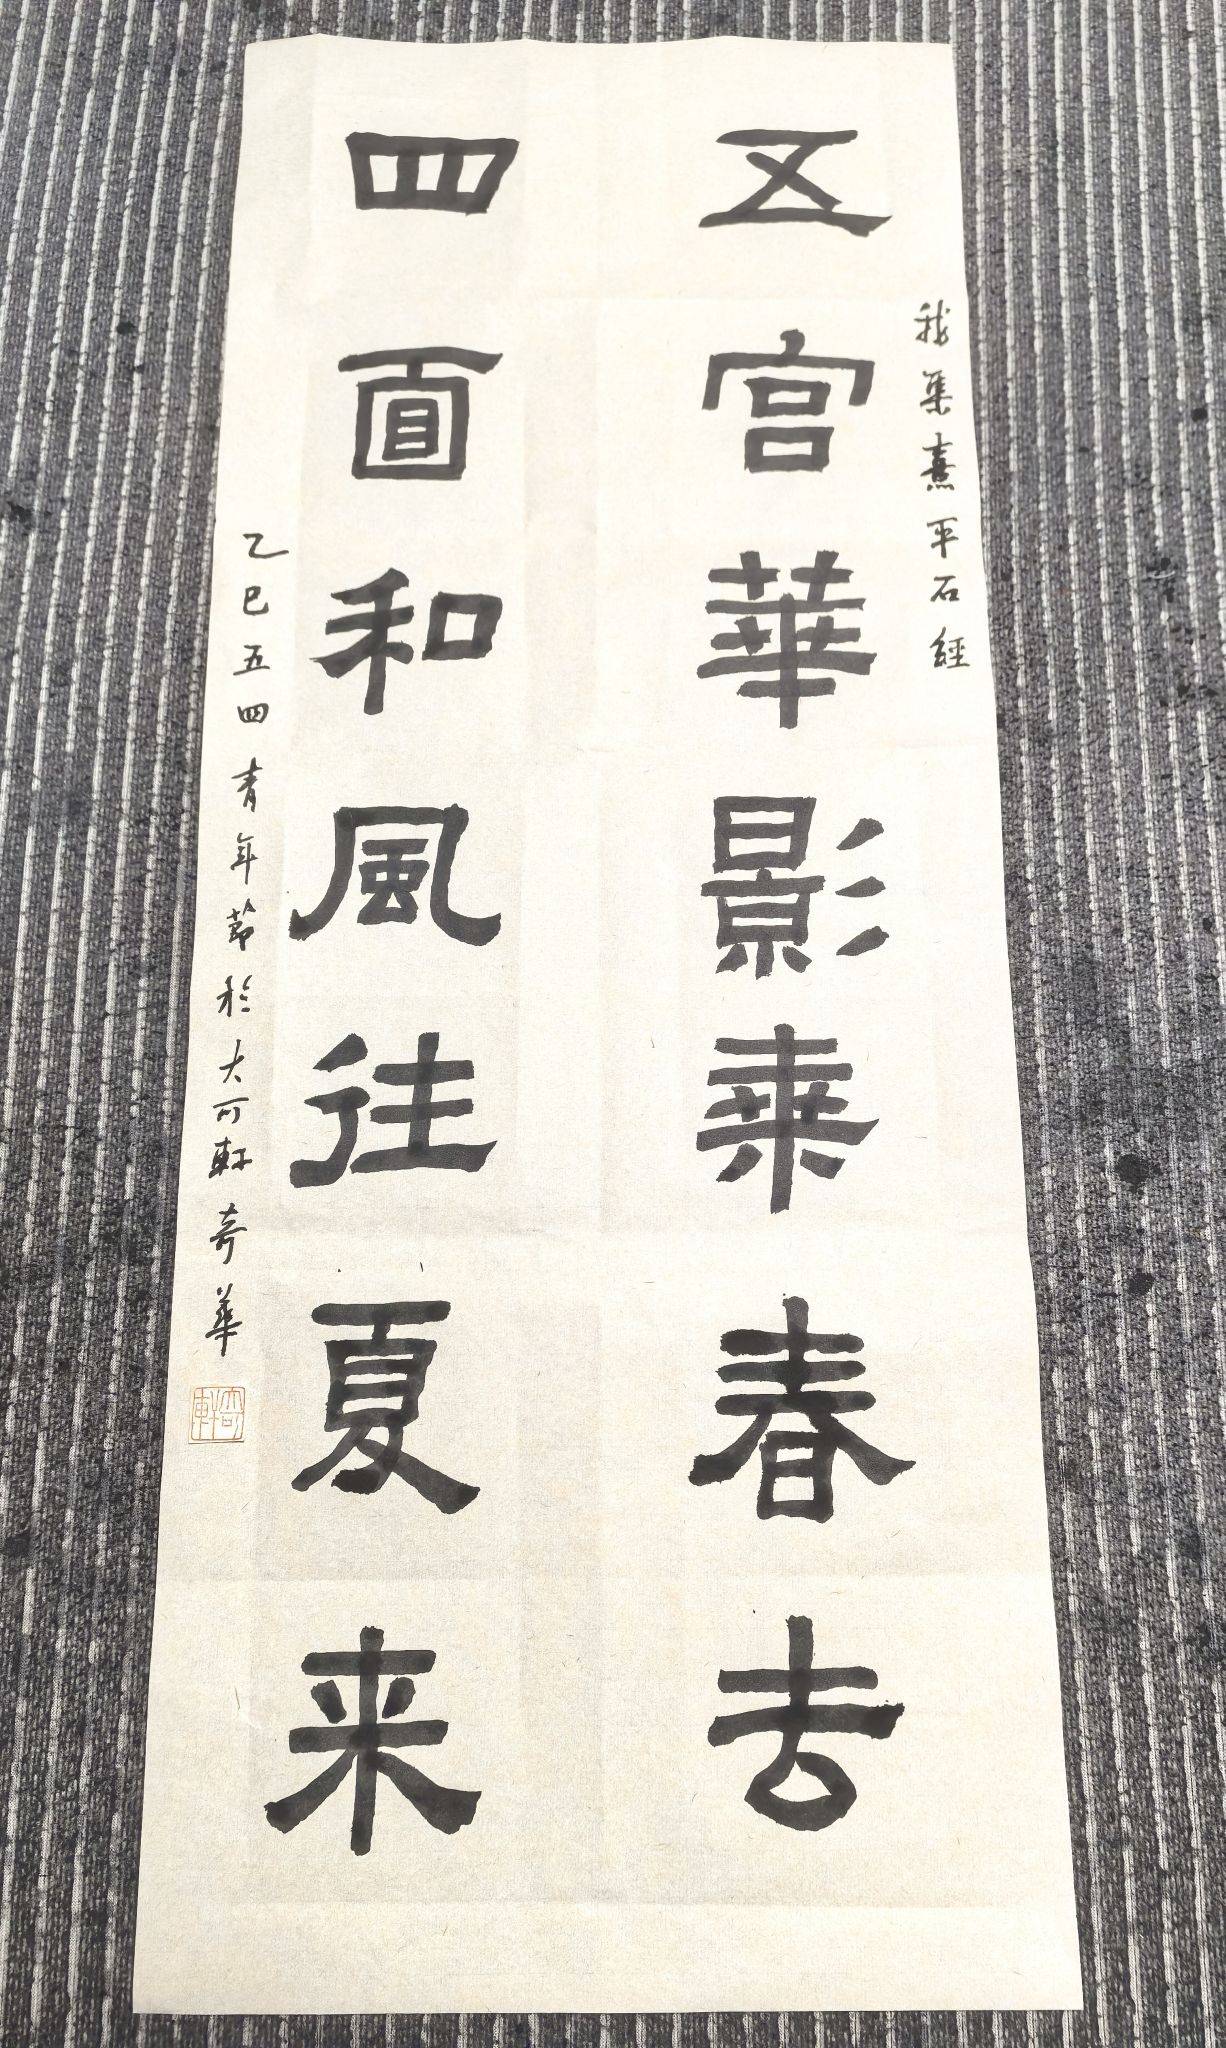 我集熹平石經
五宫華影乘春去
四面和風往夏来
乙巳五四青年節於大可軒奇華
大可軒